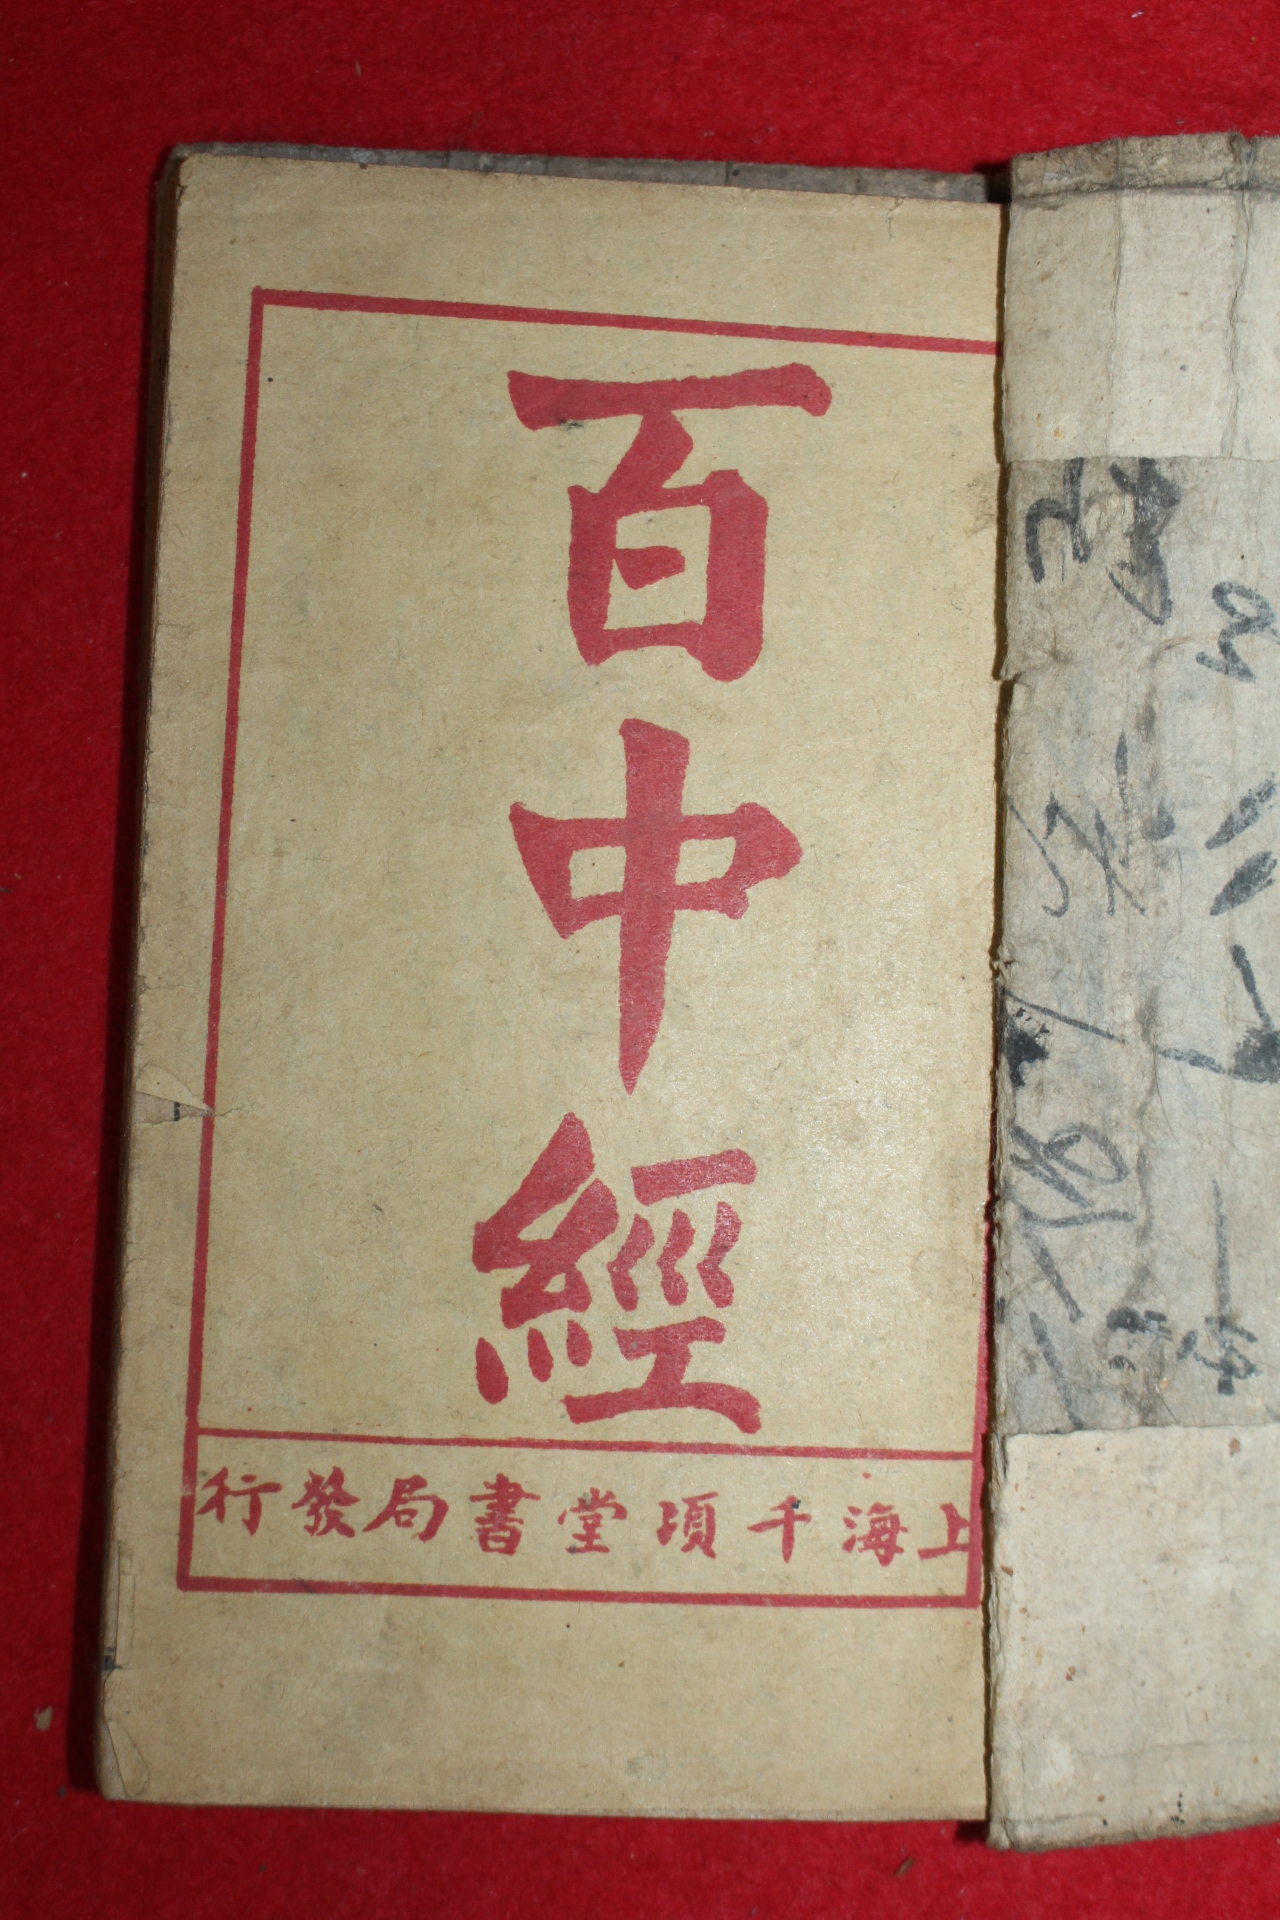 百中經
上海千頃堂書局發行